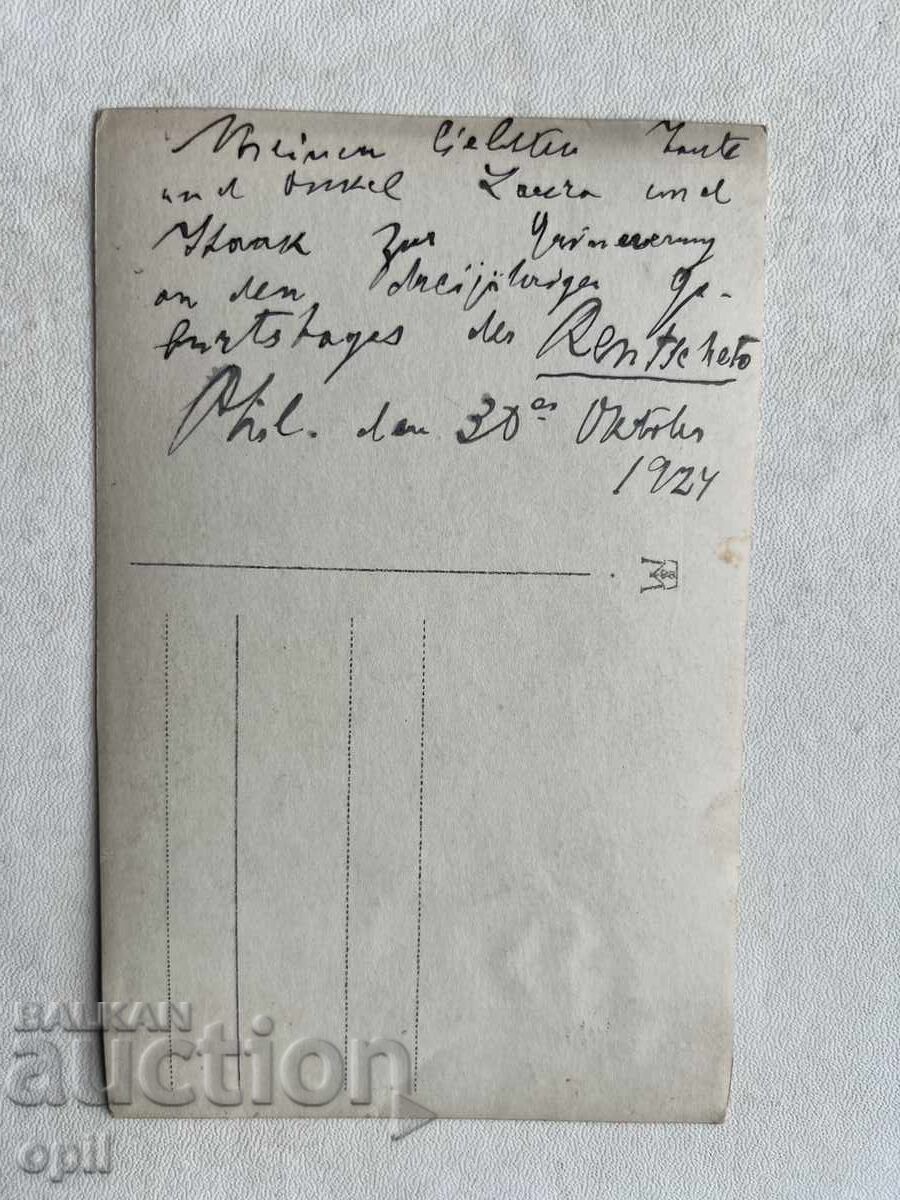 Meinen liebsten Tante
und Onkel Laura und
Isaak zur Erinnerung
an den dreijährigen Ge-
burtstages des Rentscheto
Phil. den 30er Oktober
1924
BALKAN
auction
opil